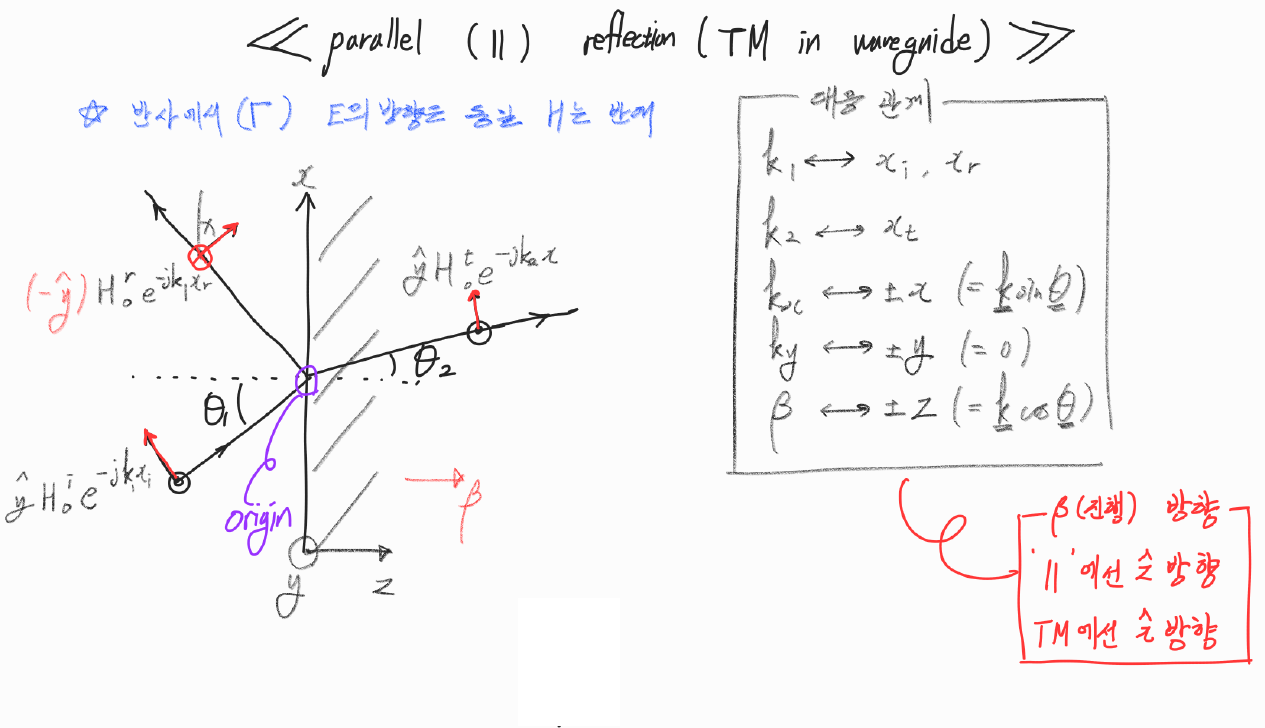 ≪ parallel (||) reflection (TM in waveguide) ≫
☆ 반사에서(Γ) E의 방향은 동일 H는 반대
대응 관계
k₁ ↔ xᵢ, xᵣ
k₂ ↔ xₜ
kₓ ↔ ±x (= k sinθ)
k_y ↔ ±y (= 0)
β ↔ ±z (= k cosθ)
x
(-ŷ) H₀ʳ e^{-jk₁xᵣ}
ŷ H₀ᵗ e^{-jk₂x}
θ₂
θ₁
ŷ H₀ⁱ e^{-jk₁xᵢ}
origin
β
y
z
β(진행) 방향
'||'에선 ẑ 방향
TM에선 ẑ 방향